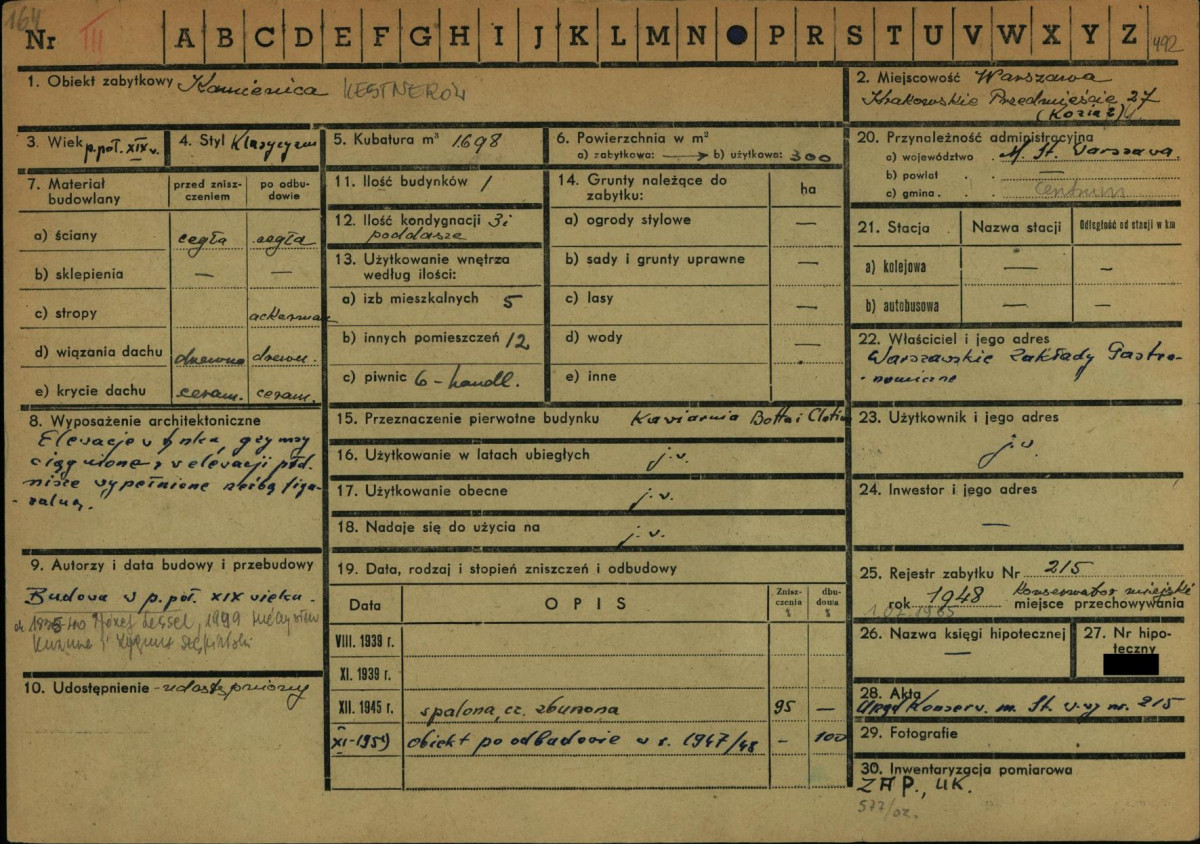 164
Nr III A B C D E F G H I J K L M N P R S T U V W X Y Z 492
1. Obiekt zabytkowy Kamienica KESTNERÓW
2. Miejscowość Warszawa
Krakowskie Przedmieście 27
(Kozia 2)
3. Wiek p. poł. XIX w.
4. Styl Klasycyzm
5. Kubatura m³ 1698
6. Powierzchnia w m²
a) zabytkowa: → b) użytkowa: 300
7. Materiał budowlany
przed zniszczeniem
po odbudowie
a) ściany cegła cegła
b) sklepienia — —
c) stropy ackerman
d) wiązania dachu drewno drewn.
e) krycie dachu ceram. ceram.
8. Wyposażenie architektoniczne
Elewacje w tynku, gzymsy
ciągnione, w elewacji płd.
nisze wypełnione rzeźbą figu-
-ralną.
9. Autorzy i data budowy i przebudowy
Budowa w p. poł. XIX wieku.
Józef Lessel, 1949 Mieczysław
Kuzma i Zygmunt Stępiński
10. Udostępnienie - udostępniony
11. Ilość budynków 1
12. Ilość kondygnacji 3 i
poddasze
13. Użytkowanie wnętrza
według ilości:
a) izb mieszkalnych 5
b) innych pomieszczeń 12
c) piwnic 6 - handl.
14. Grunty należące do
zabytku:
ha
a) ogrody stylowe —
b) sady i grunty uprawne —
c) lasy —
d) wody —
e) inne
15. Przeznaczenie pierwotne budynku Kawiarnia
16. Użytkowanie w latach ubiegłych j.w.
17. Użytkowanie obecne j.w.
18. Nadaje się do użycia na j.w.
19. Data, rodzaj i stopień zniszczeń i odbudowy
Data OPIS Zniszczenia % dbudowa %
VIII. 1939 r.
XI. 1939 r.
XII. 1945 r. spalona, cz. zburzona 95 —
XI-1959 obiekt po odbudowie w r. 1947/48 - 100
20. Przynależność administracyjna
a) województwo M. St. Warszawa
b) powiat —
c) gmina Centrum
21. Stacja Nazwa stacji Odległość od stacji w km
a) kolejowa — –
b) autobusowa — –
22. Właściciel i jego adres
Warszawskie Zakłady Gastro-
-nomiczne
23. Użytkownik i jego adres
j.w.
24. Inwestor i jego adres
—
25. Rejestr zabytku Nr 215
rok 1948 Konserwator miejski
1.07.1965 miejsce przechowywania
26. Nazwa księgi hipotecznej
—
27. Nr hipoteczny
28. Akta
Urząd Konserw. m. St. W-wy nr. 215
29. Fotografie
30. Inwentaryzacja pomiarowa
ZAP., UK.
577/02.